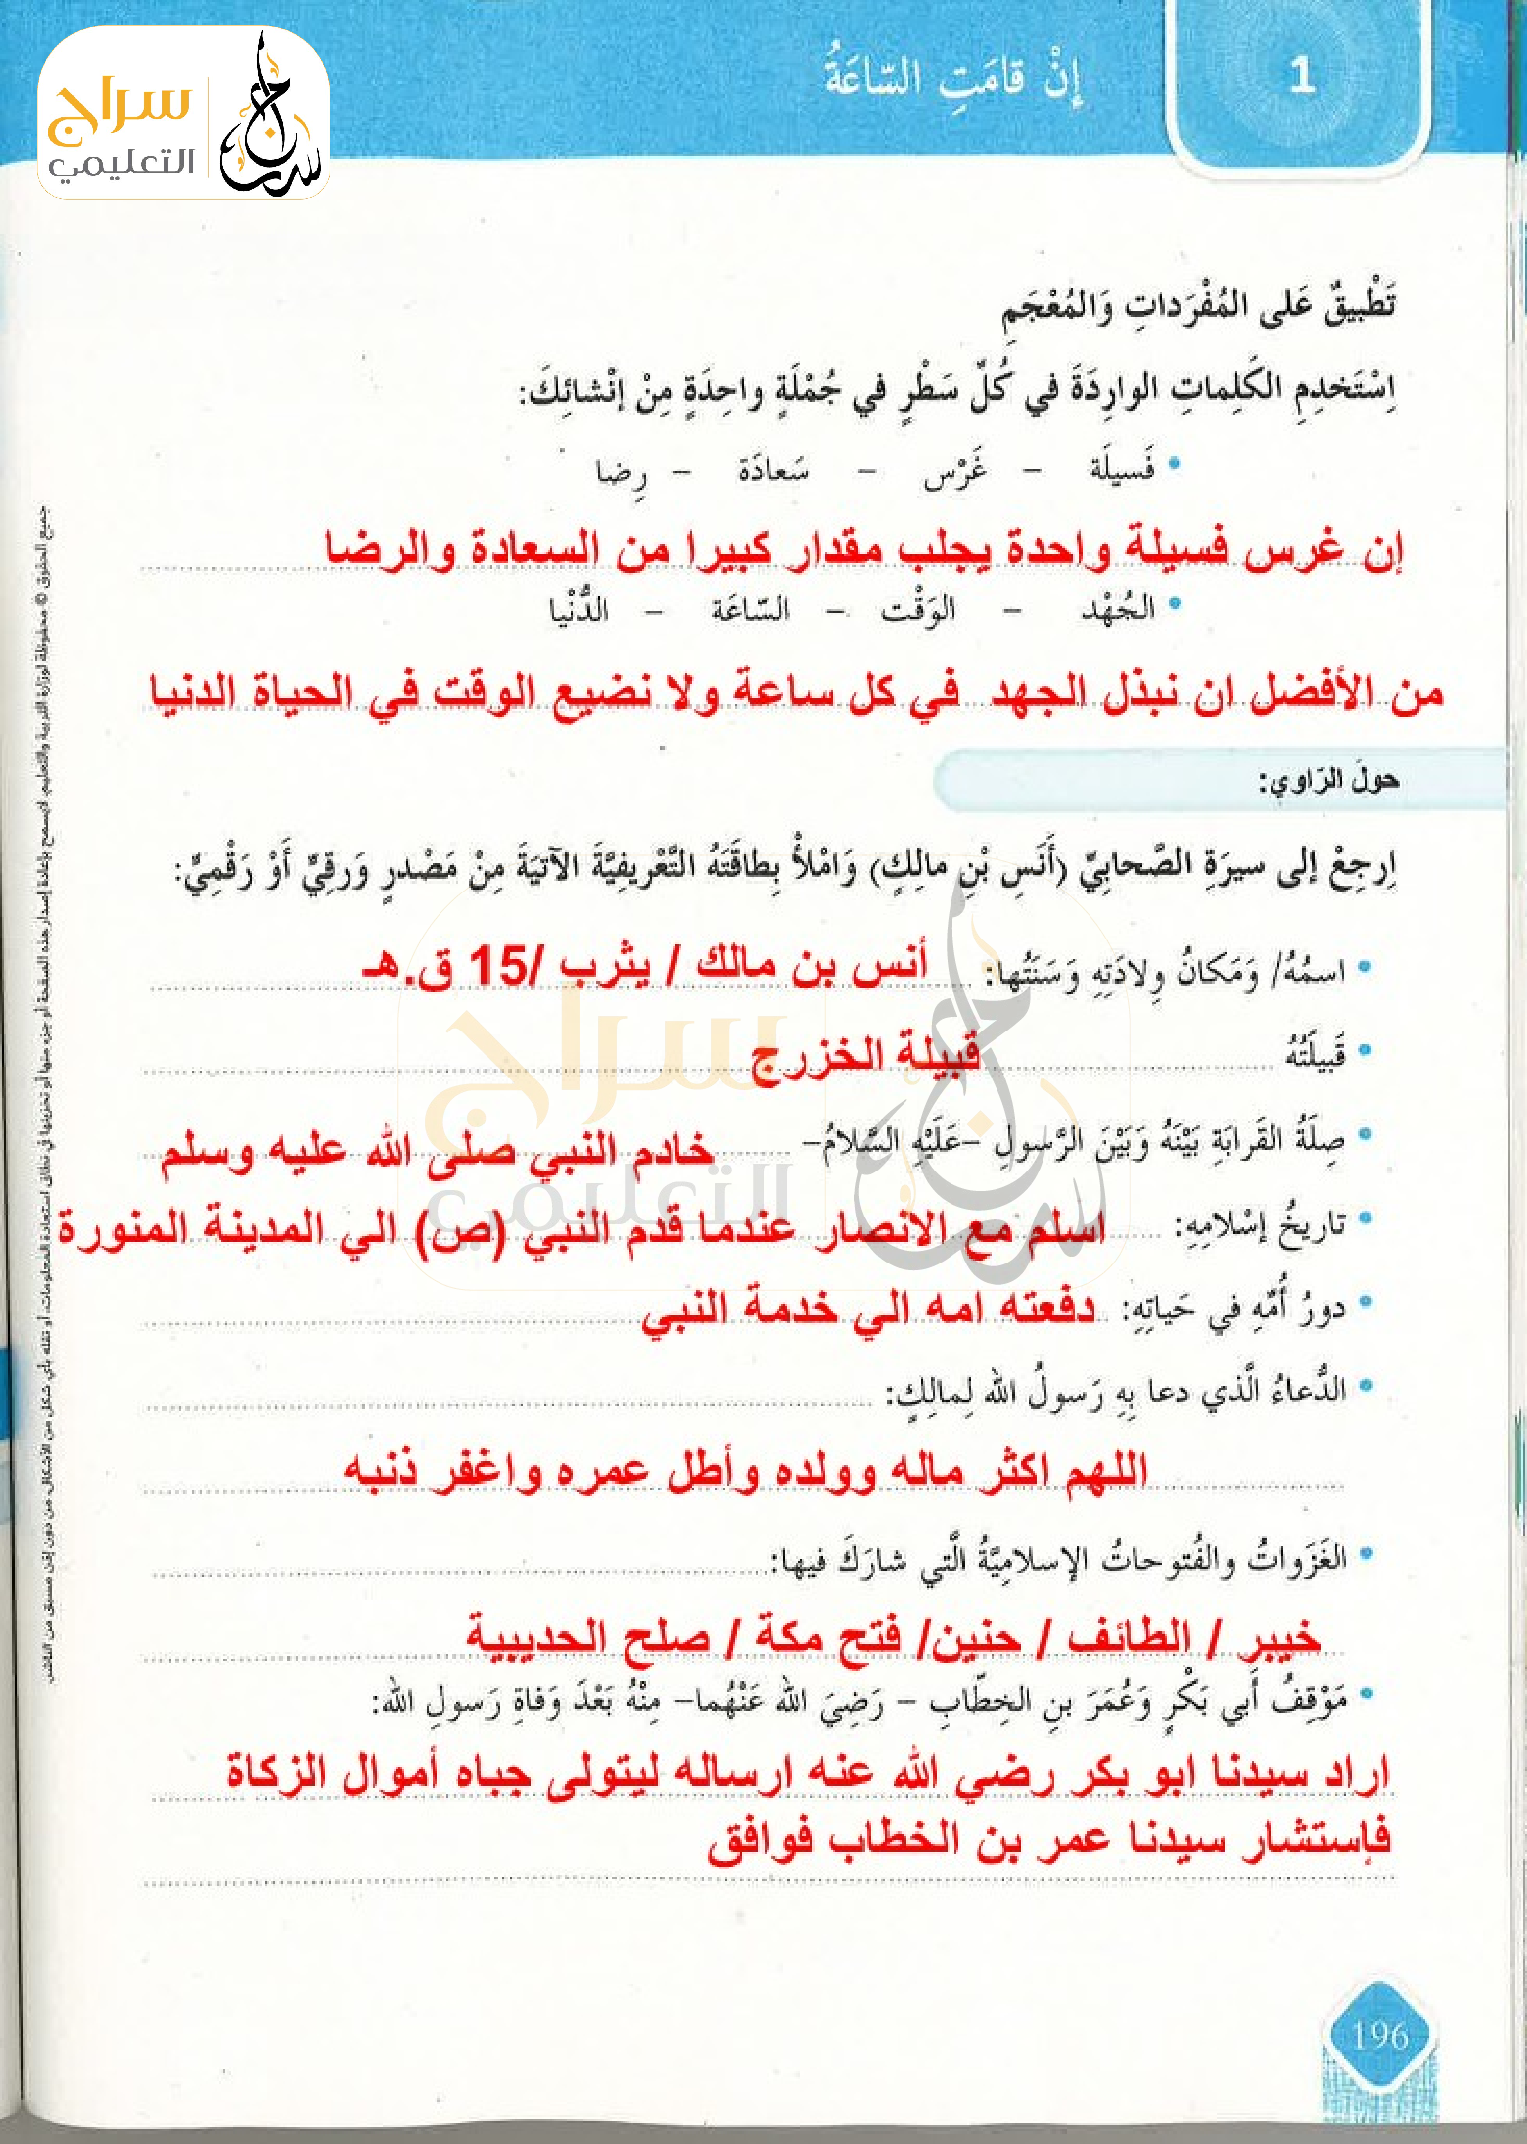 سراج
التعليمي
إِنْ قامَتِ السّاعَةُ
1
تَطْبيقٌ عَلى المُفْرَداتِ وَالمُعْجَمِ
اِسْتَخدِمِ الكَلِماتِ الوارِدَةَ في كُلِّ سَطْرٍ في جُمْلَةٍ واحِدَةٍ مِنْ إنْشائِكَ:
• فَسيلَة – غَرْس – سَعادَة – رِضا
إن غرس فسيلة واحدة يجلب مقدار كبيرا من السعادة والرضا
• الجُهْد – الوَقْت – السّاعَة – الدُّنْيا
من الأفضل ان نبذل الجهد في كل ساعة ولا نضيع الوقت في الحياة الدنيا
حولَ الرّاوي:
اِرجِعْ إلى سيرَةِ الصَّحابِيِّ (أَنَسِ بْنِ مالِكٍ) وَامْلأْ بِطاقَتَهُ التَّعْريفِيَّةَ الآتيَةَ مِنْ مَصْدرٍ وَرقِيٍّ أَوْ رَقْمِيٍّ:
• اسمُهُ/ وَمَكانُ وِلادَتِهِ وَسَنَتُها: أنس بن مالك / يثرب /15 ق.هـ
• قَبيلَتُهُ قبيلة الخزرج
• صِلَةُ القَرابَةِ بَيْنَهُ وَبَيْنَ الرَّسولِ –عَلَيْهِ السَّلامُ– خادم النبي صلى الله عليه وسلم
• تاريخُ إسْلامِهِ: اسلم مع الانصار عندما قدم النبي (ص) الي المدينة المنورة
• دورُ أُمِّهِ في حَياتِهِ: دفعته امه الي خدمة النبي
• الدُّعاءُ الَّذي دعا بِهِ رَسولُ الله لِمالِكٍ:
اللهم اكثر ماله وولده وأطل عمره واغفر ذنبه
• الغَزَواتُ والفُتوحاتُ الإسلاميَّةُ الَّتي شارَكَ فيها:
خيبر / الطائف / حنين/ فتح مكة / صلح الحديبية
• مَوْقِفُ أَبي بَكْرٍ وَعُمَرَ بنِ الخِطّابِ – رَضِيَ الله عَنْهُما– مِنْهُ بَعْدَ وَفاةِ رَسولِ الله:
اراد سيدنا ابو بكر رضي الله عنه ارساله ليتولى جباه أموال الزكاة
فإستشار سيدنا عمر بن الخطاب فوافق
196
جميع الحقوق © محفوظة لوزارة التربية والتعليم. لايسمح بإعادة إصدار هذه الصفحة أو جزء منها أو تخزينها في نطاق استعادة المعلومات، أو نقله بأي شكل من الأشكال من دون إذن مسبق من الناشر.